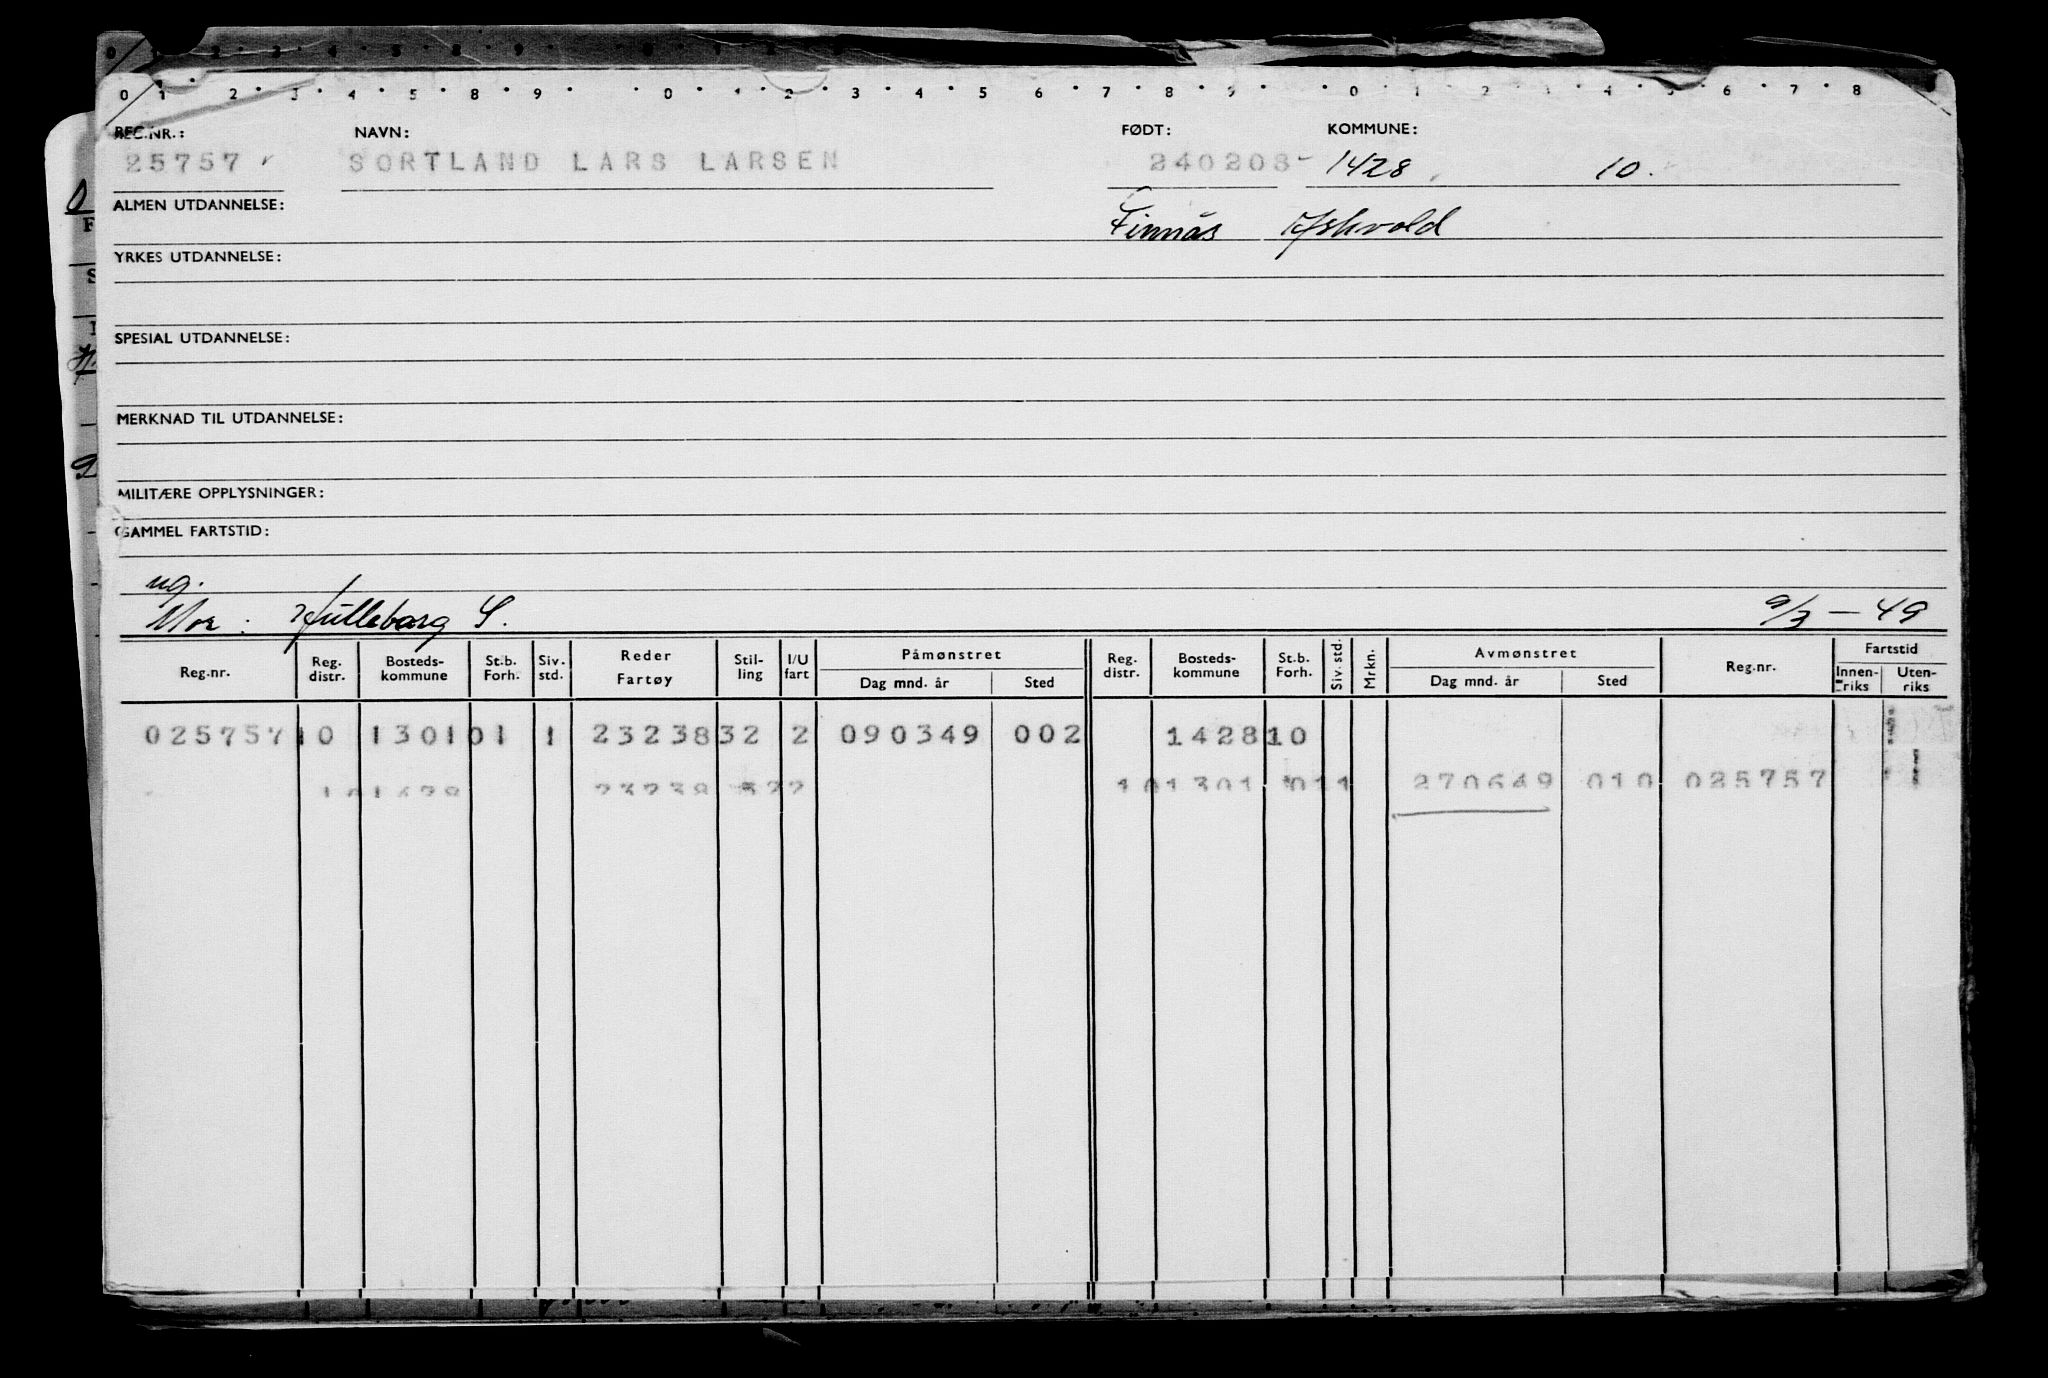 0 1 2 3 4 5 8 9 0 1 2 3 4 5 6 7 8 9 0 1 2 3 4 5 6 7 8
REG.NR.: NAVN: FØDT: KOMMUNE:
25757 SORTLAND LARS LARSEN 240208 - 1428 10.
ALMEN UTDANNELSE: Finnås Askvold
YRKES UTDANNELSE:
SPESIAL UTDANNELSE:
MERKNAD TIL UTDANNELSE:
MILITÆRE OPPLYSNINGER:
GAMMEL FARTSTID:
ug.
Mor: Hulleborg S. 9/3 - 49
Reg.nr. Reg. distr. Bosteds-kommune St.b. Forh. Siv. std. Reder Fartøy Stil-ling I/U fart Påmønstret Dag mnd. år Sted Reg. distr. Bosteds-kommune St.b. Forh. Siv. std. Mrkn. Avmønstret Dag mnd. år Sted Reg.nr. Fartstid Innen-riks Uten-riks
025757 10 1301 01 1 23238 32 2 090349 002 1428 10
10 1428 23238 2 10 1301 01 1 270649 010 025757